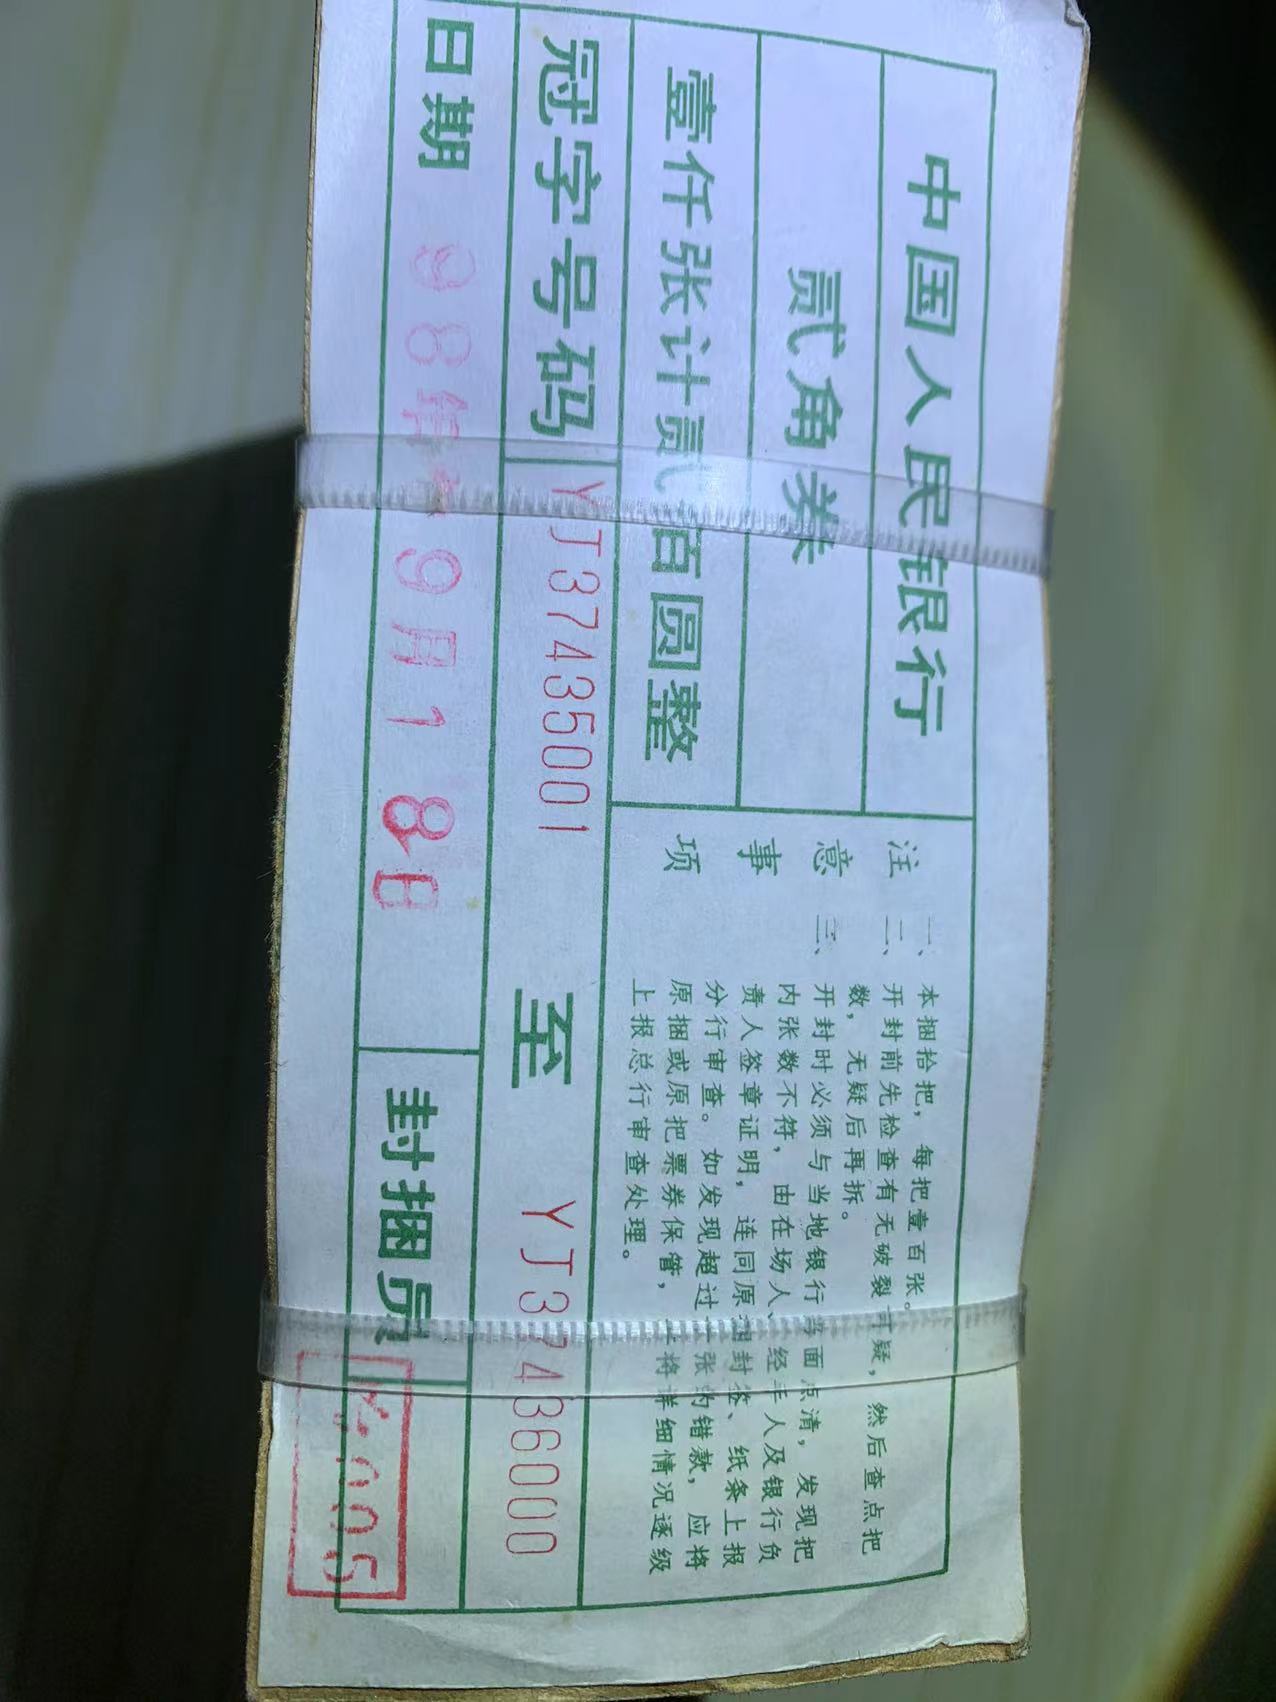 中国人民银行
贰角券
壹仟张计贰佰圆整
注意事项
一、本捆拾把，每把壹百张。
二、开封前先检查有无破裂可疑，然后查点把
数，无疑后再拆。
三、开封时必须与当地银行当面点清，发现把
内张数不符，由在场人、经手人及银行负
责人签章证明，连同原捆封签、纸条上报
分行审查。如发现超过一张的错款，应将
原捆或原把票券保管，并将详细情况逐级
上报总行审查处理。
冠字号码 YJ37435001 至 YJ37436000
日期 98年 9月18日 封捆员